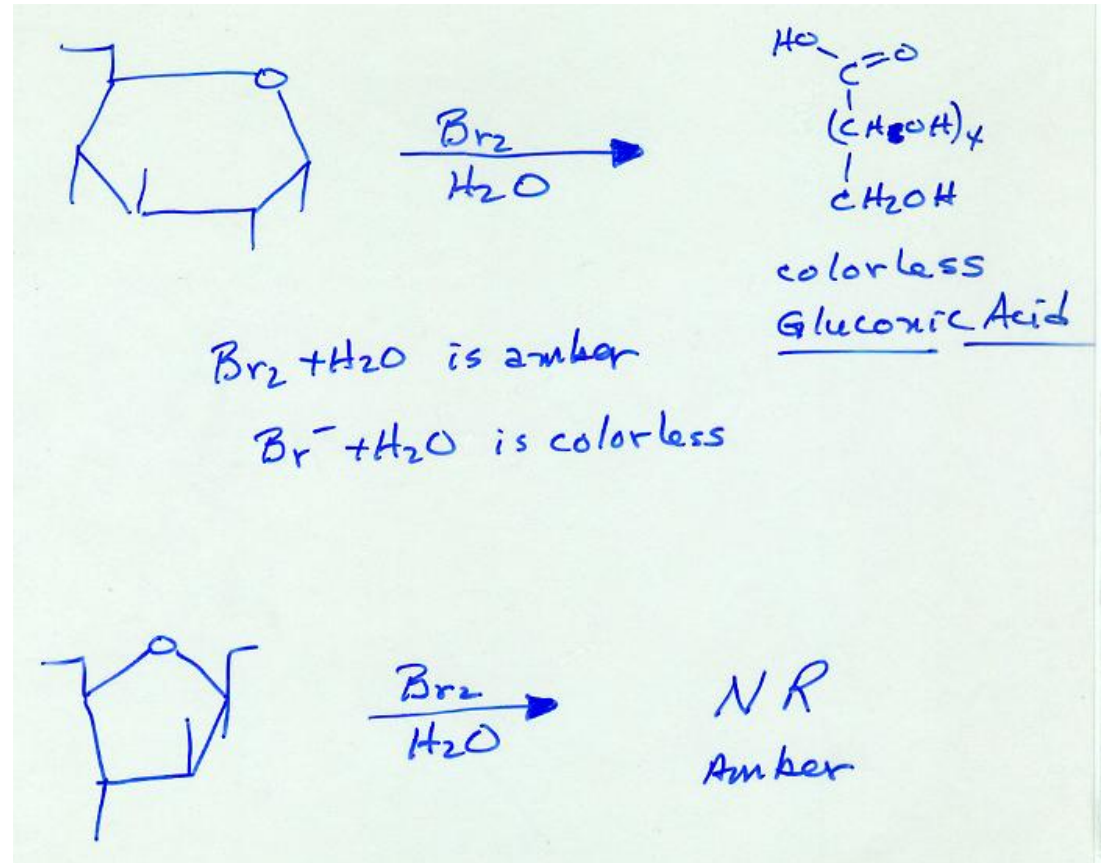 O
Br2
H2O
HO
C=O
(CHOH)4
CH2OH
colorless
Gluconic Acid
Br2 + H2O is amber
Br⁻ + H2O is colorless
O
Br2
H2O
NR
Amber